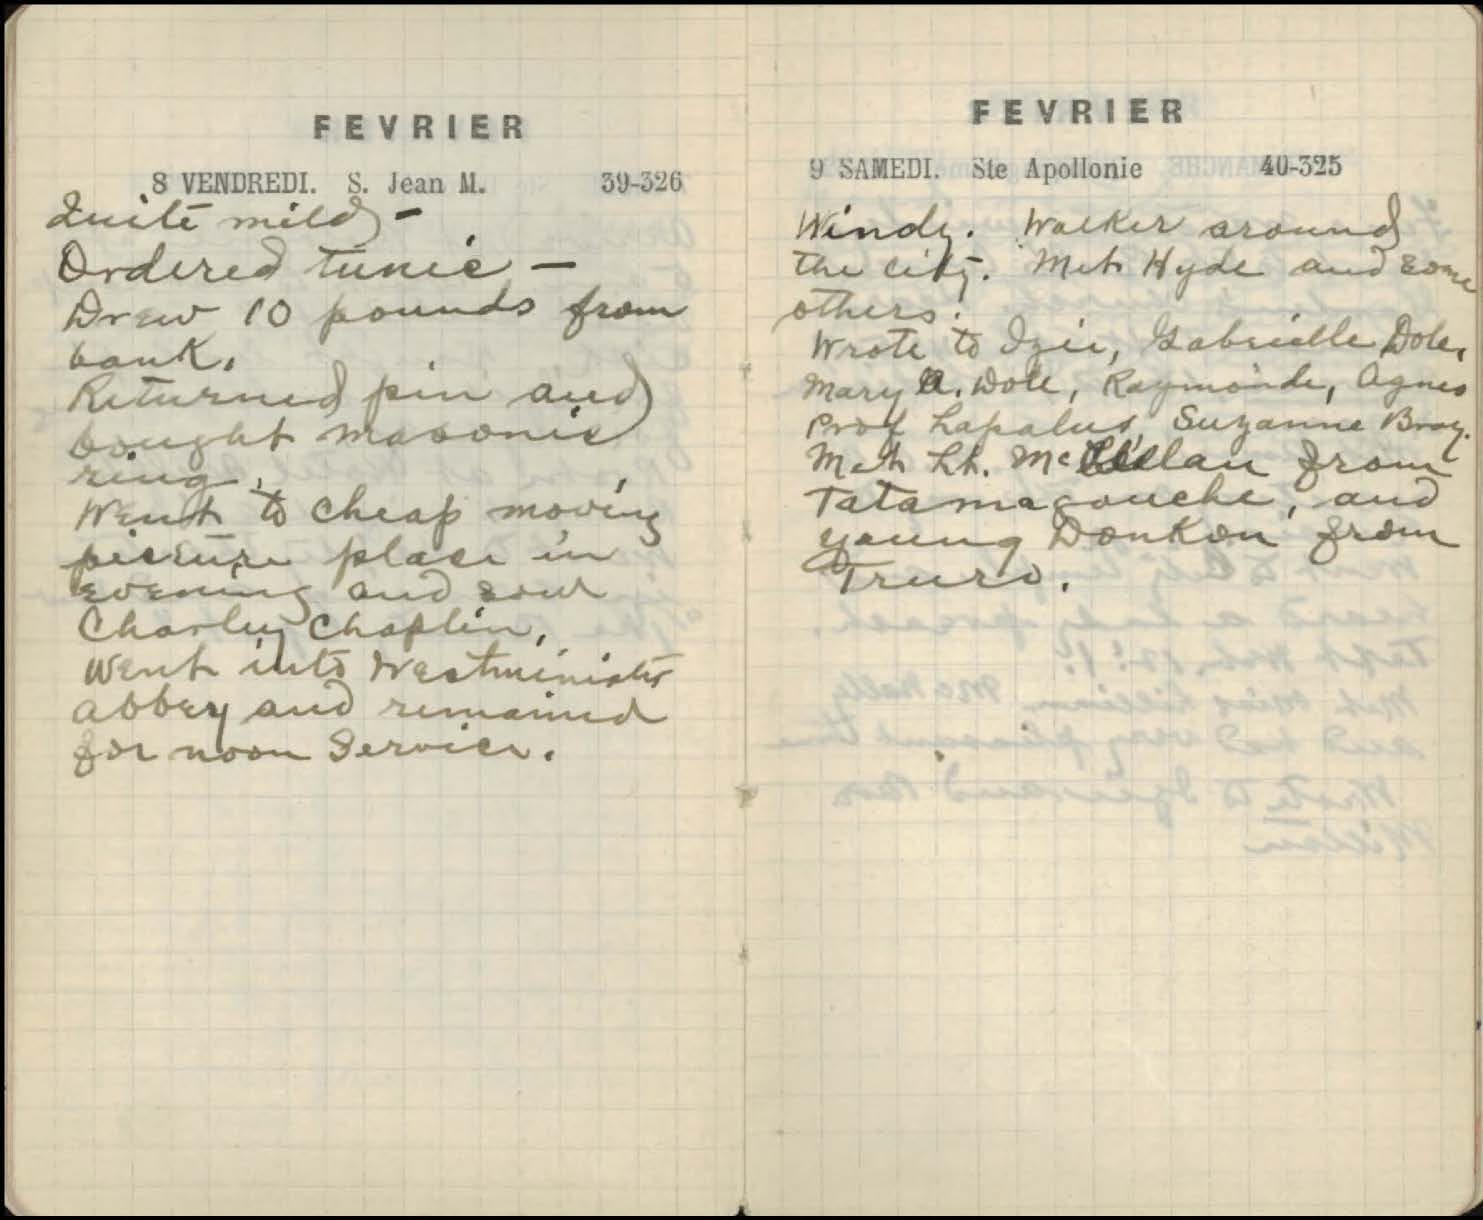 FEVRIER
8 VENDREDI. S. Jean M. 39-326
Quite mild -
Ordered tunic -
Drew 10 pounds from
bank.
Returned pin and
bought masonic
ring.
Went to cheap moving
picture place in
evening and saw
Charley Chaplin,
Went into Westminister
abbey and remained
for noon Service.
FEVRIER
9 SAMEDI. Ste Apollonie 40-325
Windy. Walker around
the city. Met Hyde and some
others.
Wrote to Izie, Gabrielle Dole,
Mary A. Dole, Raymonde, Agnes
Prof Lapalus, Suzanne Bray.
Met Lt. McLellan from
Tatamagouche, and
young Donkon from
Truro.